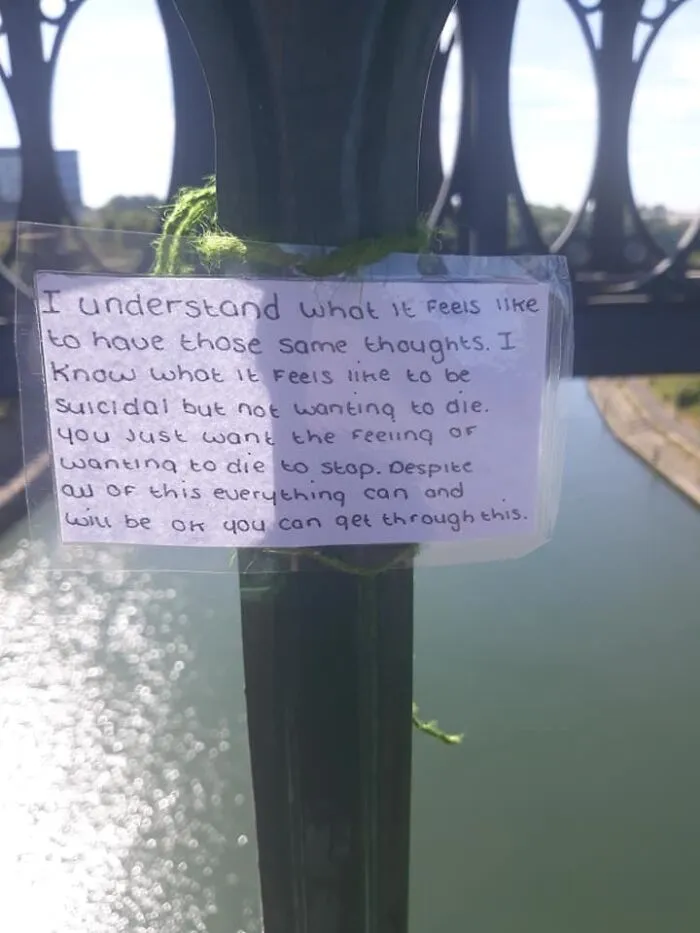 I understand what it feels like
to have those same thoughts. I
know what it feels like to be
suicidal but not wanting to die.
you just want the feeling of
wanting to die to stop. Despite
all of this everything can and
will be ok you can get through this.